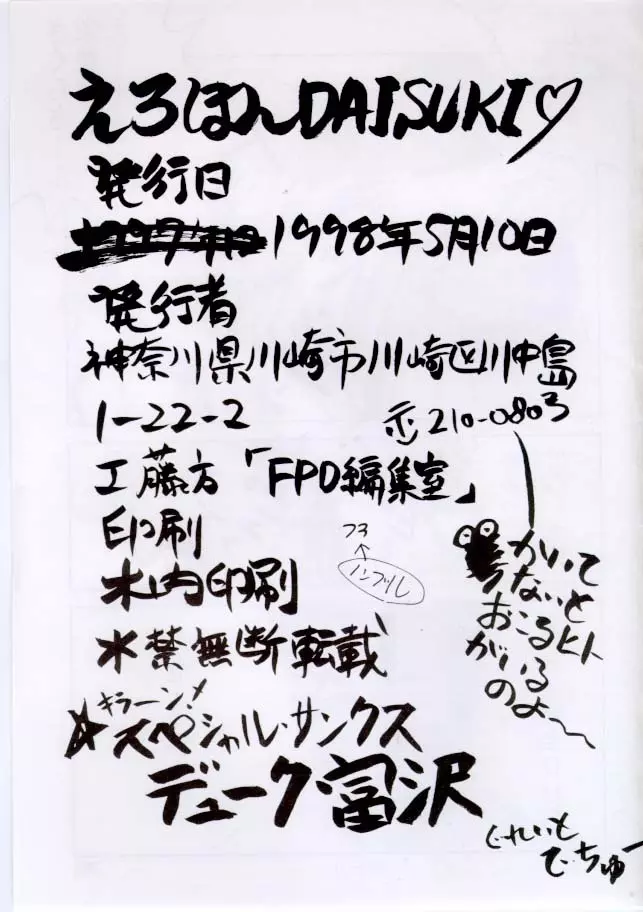 えろほんDAISUKI♡
発行日
1998年5月10日
発行者
神奈川県川崎市川崎区川中島
1-22-2 〒210-0803
工藤方「FPO編集室」
印刷
木内印刷
氷禁無断転載
フ3
↑
ノンブル
かいて
ないと
おこるヒト
がいる
のよ〜
キラーン!
☆スペシャル・サンクス
デューク富沢
ぐれいと
でちゅー